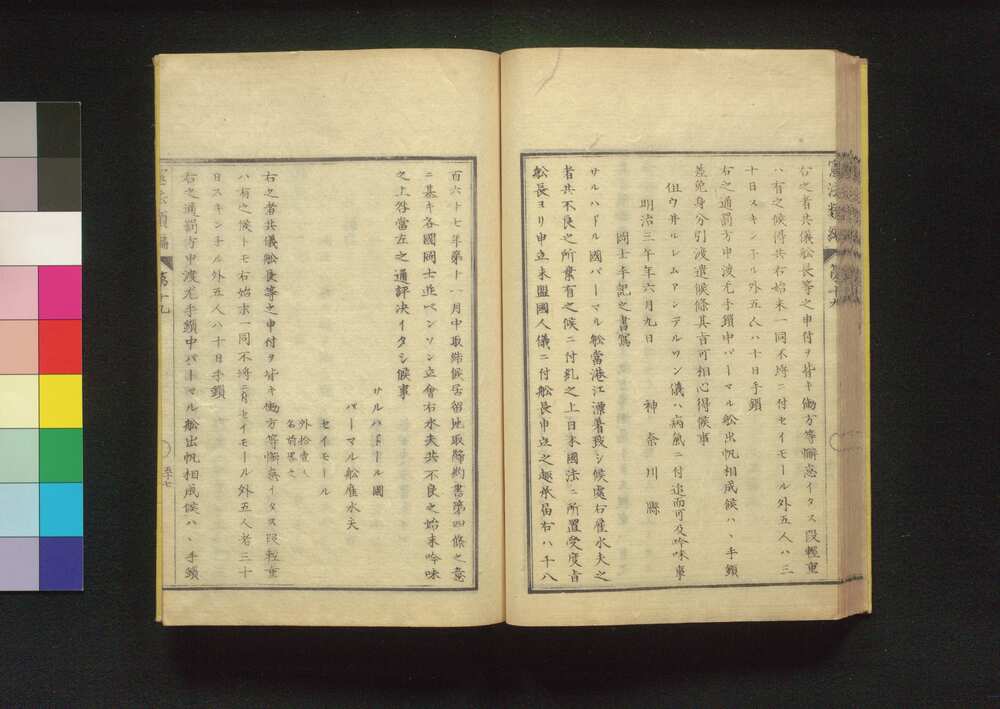 憲法類編 第十九
右之者共儀舩長等之申付ヲ背キ働方等懈怠イタス段輕重
ハ有之候得共右始末一同不埒ニ付セイモール外五人ハ三
十日スキンチル外五人ハ十日手鎖
右之通罰方申渡尤手鎖中バーマル舩出帆相成候ハヽ手鎖
差免身分引渡遣候條其旨可相心得候事
但ウ井ルレムアンデルソン儀ハ病氣ニ付追而可及吟味事
明治三年年六月九日 神奈川縣
同士手記之書寫
サルハドル國バーマル舩當港江漂着致シ候處右雇水夫之
者共不良之所業有之候ニ付糺之上日本國法ニ所置受度旨
舩長ヨリ申立未盟國人儀ニ付舩長申立之趣承届右ハ千八
百六十七年第十一月中取締候居留地取締約書第四條之意
ニ基キ各國岡士並ベンソン立會右水夫共不良之始末吟味
之上咎當左之通評決イタシ候事
サルハドール國
バーマル舩雇水夫
セイモール
外拾壹人
名前畧之
右之者共儀舩長等之申付ヲ背キ働方等懈怠イタス段輕重
ハ有之候ト モ右始末一同不埒ニ付セイモール外五人者三十
日スキンチル外五人ハ十日手鎖
右之通罰方申渡尤手鎖中バーマル舩出帆相成候ハヽ手鎖
憲法類編 第十九
五十七